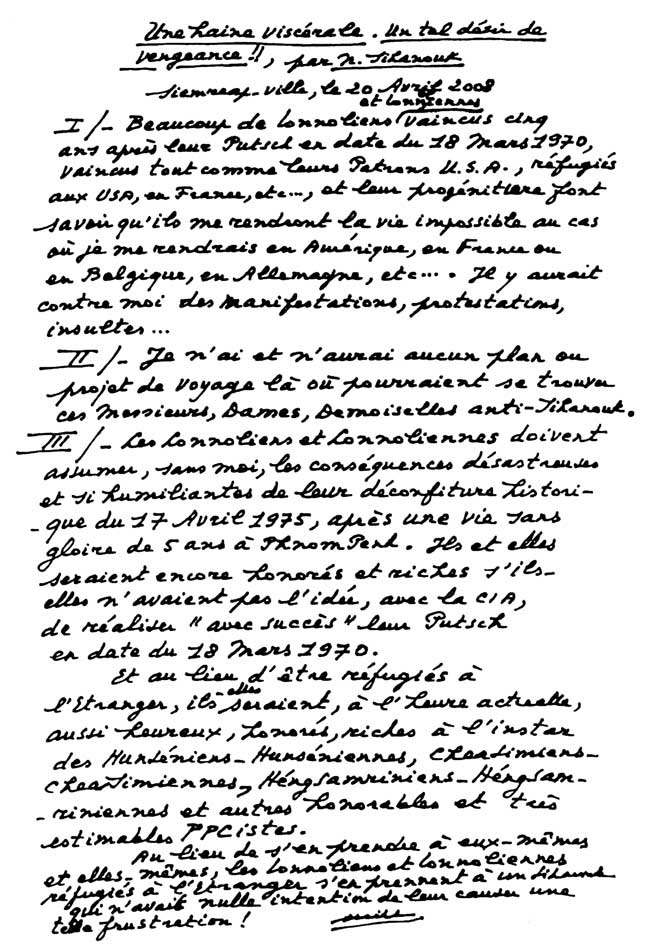 Une haine viscérale. Un tel désir de
vengeance !!, par N. Sihanouk
Siemreap-ville, le 20 Avril 2008
et lonnoliennes
I/- Beaucoup de lonnoliens vaincus cinq
ans après leur Putsch en date du 18 Mars 1970,
vaincus tout comme leurs Patrons U.S.A., réfugiés
aux USA, en France, etc..., et leur progéniture font
savoir qu'ils me rendront la vie impossible au cas
où je me rendrais en Amérique, en France ou
en Belgique, en Allemagne, etc... . Il y aurait
contre moi des manifestations, protestations,
insultes...
II/- Je n'ai et n'aurai aucun plan ou
projet de voyage là où pourraient se trouver
ces Messieurs, Dames, Demoiselles anti-Sihanouk.
III/- Les Lonnoliens et Lonnoliennes doivent
assumer, sans moi, les conséquences désastreuses
et si humiliantes de leur déconfiture histori-
-que du 17 Avril 1975, après une vie sans
gloire de 5 ans à Phnom Penh. Ils et elles
seraient encore honorés et riches s'ils-
elles n'avaient pas l'idée, avec la CIA,
de réaliser "avec succès" leur Putsch
en date du 18 Mars 1970.
Et au lieu d'être réfugiés à
l'Etranger, ils-elles seraient, à l'heure actuelle,
aussi heureux, honorés, riches à l'instar
des Hunséniens-Hunséniennes, CheaSimiens-
CheaSimiennes, Héngsamriniens-Héngsam-
-riniennes et autres honorables et très
estimables PPCistes.
Au lieu de s'en prendre à eux-mêmes
et elles-mêmes, les lonnoliens et lonnoliennes
réfugiés à l'Etranger s'en prennent à un Sihanouk
qui n'avait nulle intention de leur causer une
telle frustration !